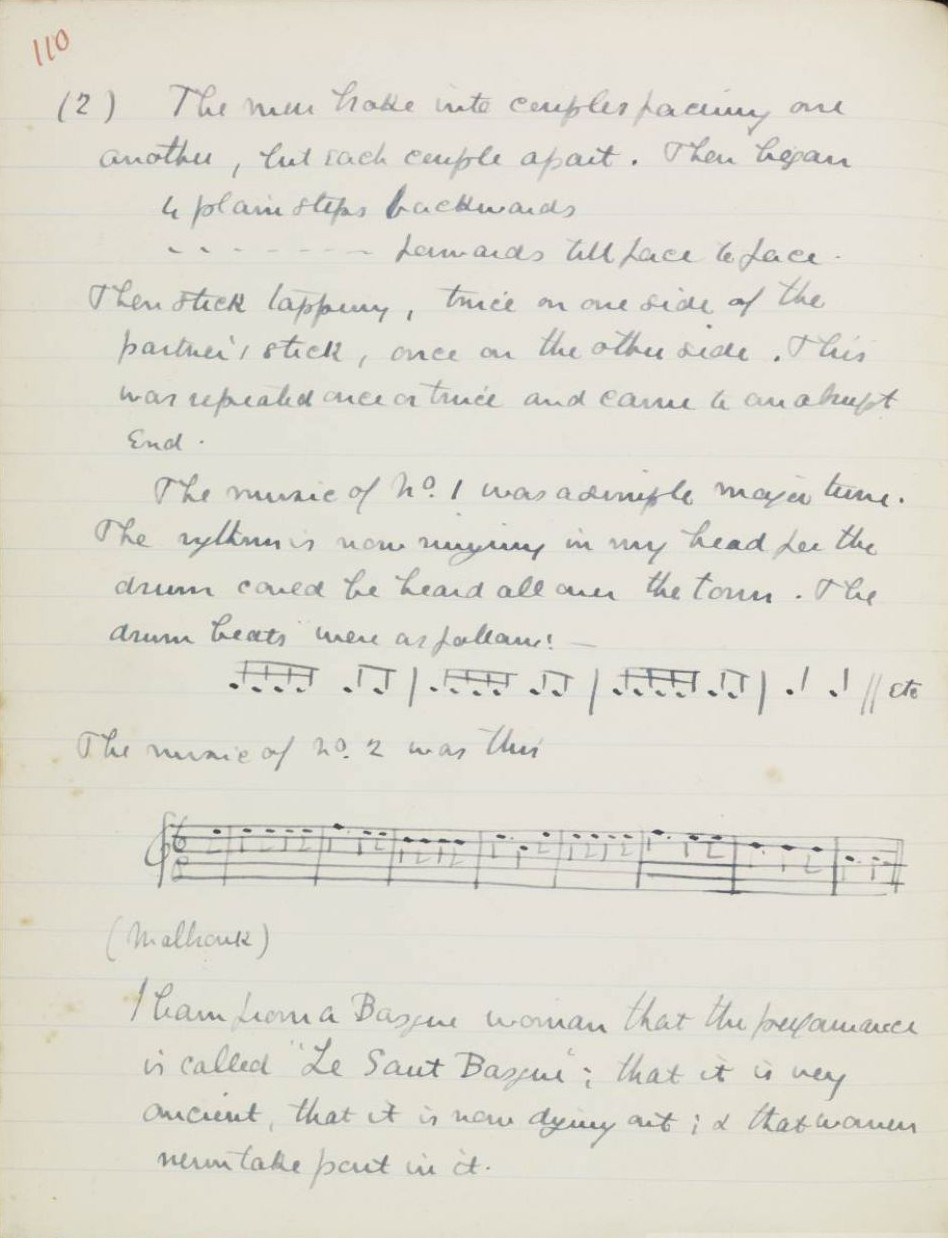 110
(2) The men brake into couples facing one
another, but each couple apart. Then began
4 plain steps backwards
- - - - - - - - forwards till face to face.
Then stick tapping, twice on one side of the
partner's stick, once on the other side. This
was repeated once or twice and came to an abrupt
End.
The music of No. 1 was a simple major tune.
The rythm is now ringing in my head for the
drum could be heard all over the town. The
drum beats were as follows: —
etc
The music of No. 2 was this
6
8
(Malbrouk)
I learn from a Basque woman that the performance
is called "Le Saut Basque"; that it is very
ancient, that it is now dying out; & that women
never take part in it.